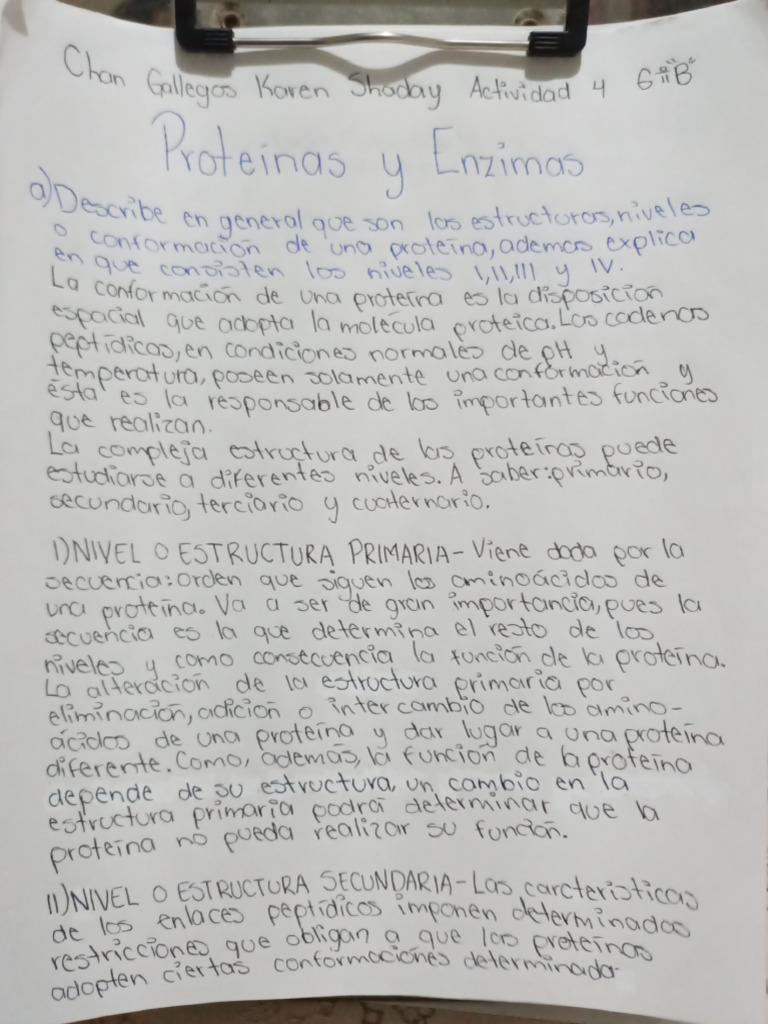 Chan Gallegos Karen Shaday Actividad 4 6 "B"
Proteínas y Enzimas
a) Describe en general que son las estructuras, niveles
o conformación de una proteína, ademas explica
en que consisten los niveles I, II, III y IV.
La conformación de una proteína es la disposición
espacial que adopta la molécula proteica. Las cadenas
peptídicas, en condiciones normales de pH y
temperatura, poseen solamente una conformación y
ésta es la responsable de las importantes funciones
que realizan.
La compleja estructura de las proteínas puede
estudiarse a diferentes niveles. A saber: primario,
secundario, terciario y cuaternario.
I) NIVEL O ESTRUCTURA PRIMARIA- Viene dada por la
secuencia: orden que siguen los aminoácidos de
una proteína. Va a ser de gran importancia, pues la
secuencia es la que determina el resto de los
niveles y como consecuencia la función de la proteína.
La alteración de la estructura primaria por
eliminación, adición o intercambio de los amino-
ácidos de una proteína y dar lugar a una proteína
diferente. Como, además, la función de la proteína
depende de su estructura, un cambio en la
estructura primaria podrá determinar que la
proteína no pueda realizar su función.
II) NIVEL O ESTRUCTURA SECUNDARIA- Las carcteristicas
de los enlaces peptídicos imponen determinadas
restricciones que obligan a que las proteínas
adopten ciertas conformaciones determinada-